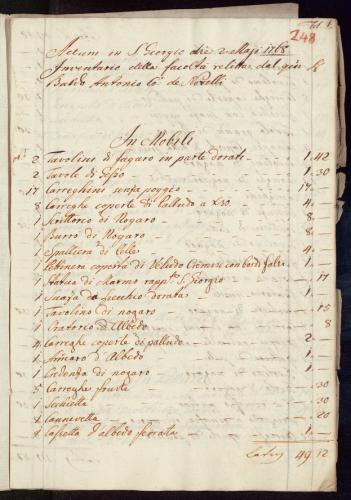 148
Actum in S. Giorgio die 2 Maji 1768
Inventario della facoltà relitta dal qm
Antonio de Novelli
In Mobili
2 Tavolini di fagaro in parte dorati 1.42
2 Tavole di 1.30
17 Carreghini senza poggio 17.
8 Carreghe coperte di Palludo a x30. 4.
1 Scrittorio di Nogaro 8.
1 Burrò di Nogaro 8.
1 Spalliera di 4.
1 coperta di Veludo Cremese con bordi falsi 1.
1 Statua di marmo rappte S. Giorgio 17
1 di specchio dorata 1.
1 Tavolino di nogaro 15
1 Oratorio d'Albedo 8
4 Carreghe coperte di palludo 1.
1 Armaro d'Albedo 1.
1 Credenza di nogaro 1.
5 Carreghe fruste 30
1 Sechietta 30
1 Cannevetta 20
1 Cassetta d'albedo ferrata 1.
Latus 49.12